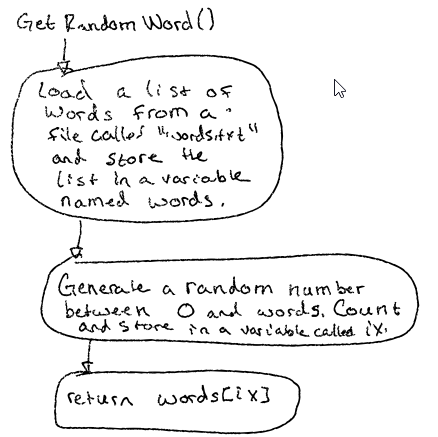 Get Random Word()
Load a list of
words from a
file called "words.txt"
and store the
list in a variable
named words.
Generate a random number
between 0 and words.Count
and store in a variable called ix.
return words[ix]